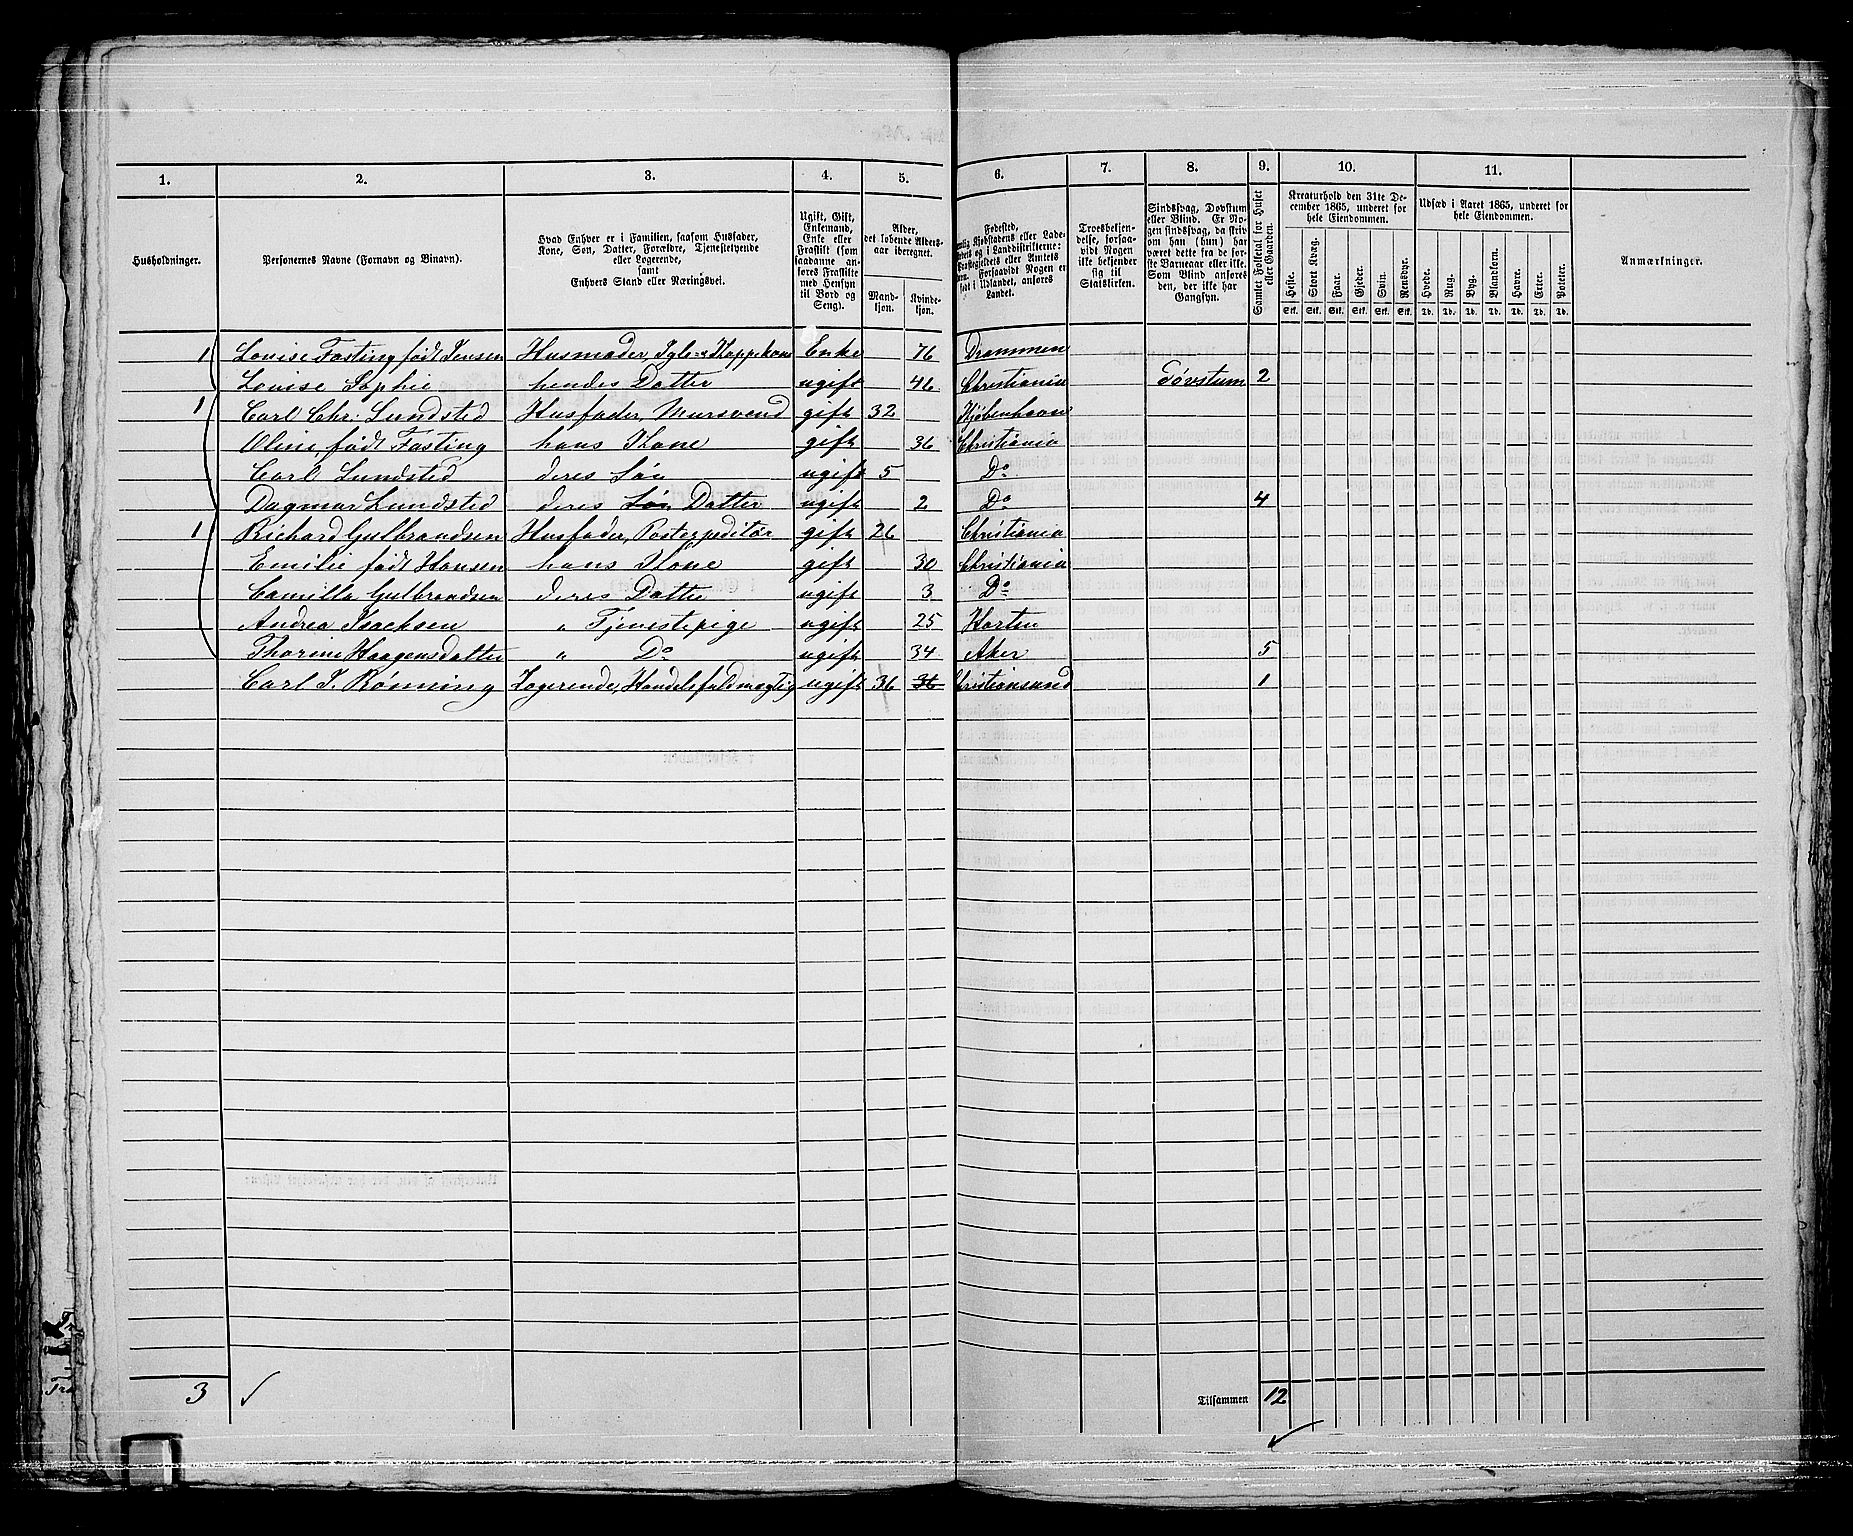 1. 2. 3. 4. 5. 6. 7. 8. 9. 10. 11.
Husholdninger.
Personernes Navne (Fornavn og Binavn).
Hvad Enhver er i Familien, saasom Husfader,
Kone, Søn, Datter, Forældre, Tjenestetyende
eller Logerende,
samt
Enhvers Stand eller Næringsvei.
Ugift, Gift,
Enkemand,
Enke eller
Fraskilt (som
saadanne an-
føres Fraskilte
med Hensyn
til Bord og
Seng).
Alder,
det løbende Alders-
aar iberegnet.
Mand-
kjøn.
Kvinde-
kjøn.
Fødested,
Kjøbstadens eller Lade-
stedets og i Landdistrikterne:
Præstegjeldets eller Amtets
Navn. Forsaavidt Nogen er
født i Udlandet, anføres
Landet.
Troesbekjen-
delse, forsaa-
vidt Nogen
ikke bekjender
sig til
Statskirken.
Sindssvag, Døvstum
eller Blind. Er No-
gen sindssvag, da skriv
om han (hun) har
været dette fra de før-
ste Barneaar eller ikke.
Som Blind anføres
den, der ikke har
Gangsyn.
Samlet Folketal for Huset
eller Gaarden.
Kreaturhold den 31te De-
cember 1865, underet for
hele Eiendommen.
Heste. Stort Kvæg. Faar. Gjeder. Svin. Rensdyr.
Stk. Stk. Stk. Stk. Stk. Stk.
Udsæd i Aaret 1865, underet for
hele Eiendommen.
Hvede. Rug. Byg. Blandkorn. Havre. Erter. Poteter.
Td. Td. Td. Td. Td. Td. Td.
Anmærkninger.
1 Louise Fasting født Jensen Husmoder, Igle- & Koppekone Enke 76 Drammen
Louise Sophie hendes Datter ugift 46 Christiania Døvstum 2
1 Carl Chr. Lundsted Husfader, Mursvend gift 32 Kjøbenhavn
Oline, født Fasting hans Kone gift 36 Christiania
Carl Lundsted deres Søn ugift 5 Do
Dagmar Lundsted deres Søn Datter ugift 2 Do 4
1 Richard Gulbrandsen Husfader, Postexpeditør gift 26 Christiania
Emilie født Hansen hans Kone gift 30 Christiania
Camilla Gulbrandsen deres Datter ugift 3 Do
Andrea Isachsen " Tjenestepige ugift 25 Horten
Thorine Haagensdatter " Do ugift 34 Aker 5
Carl J. Rønning Logerende, Handelsfuldmægtig ugift 36 36 Christiansund 1
3
Tilsammen 12